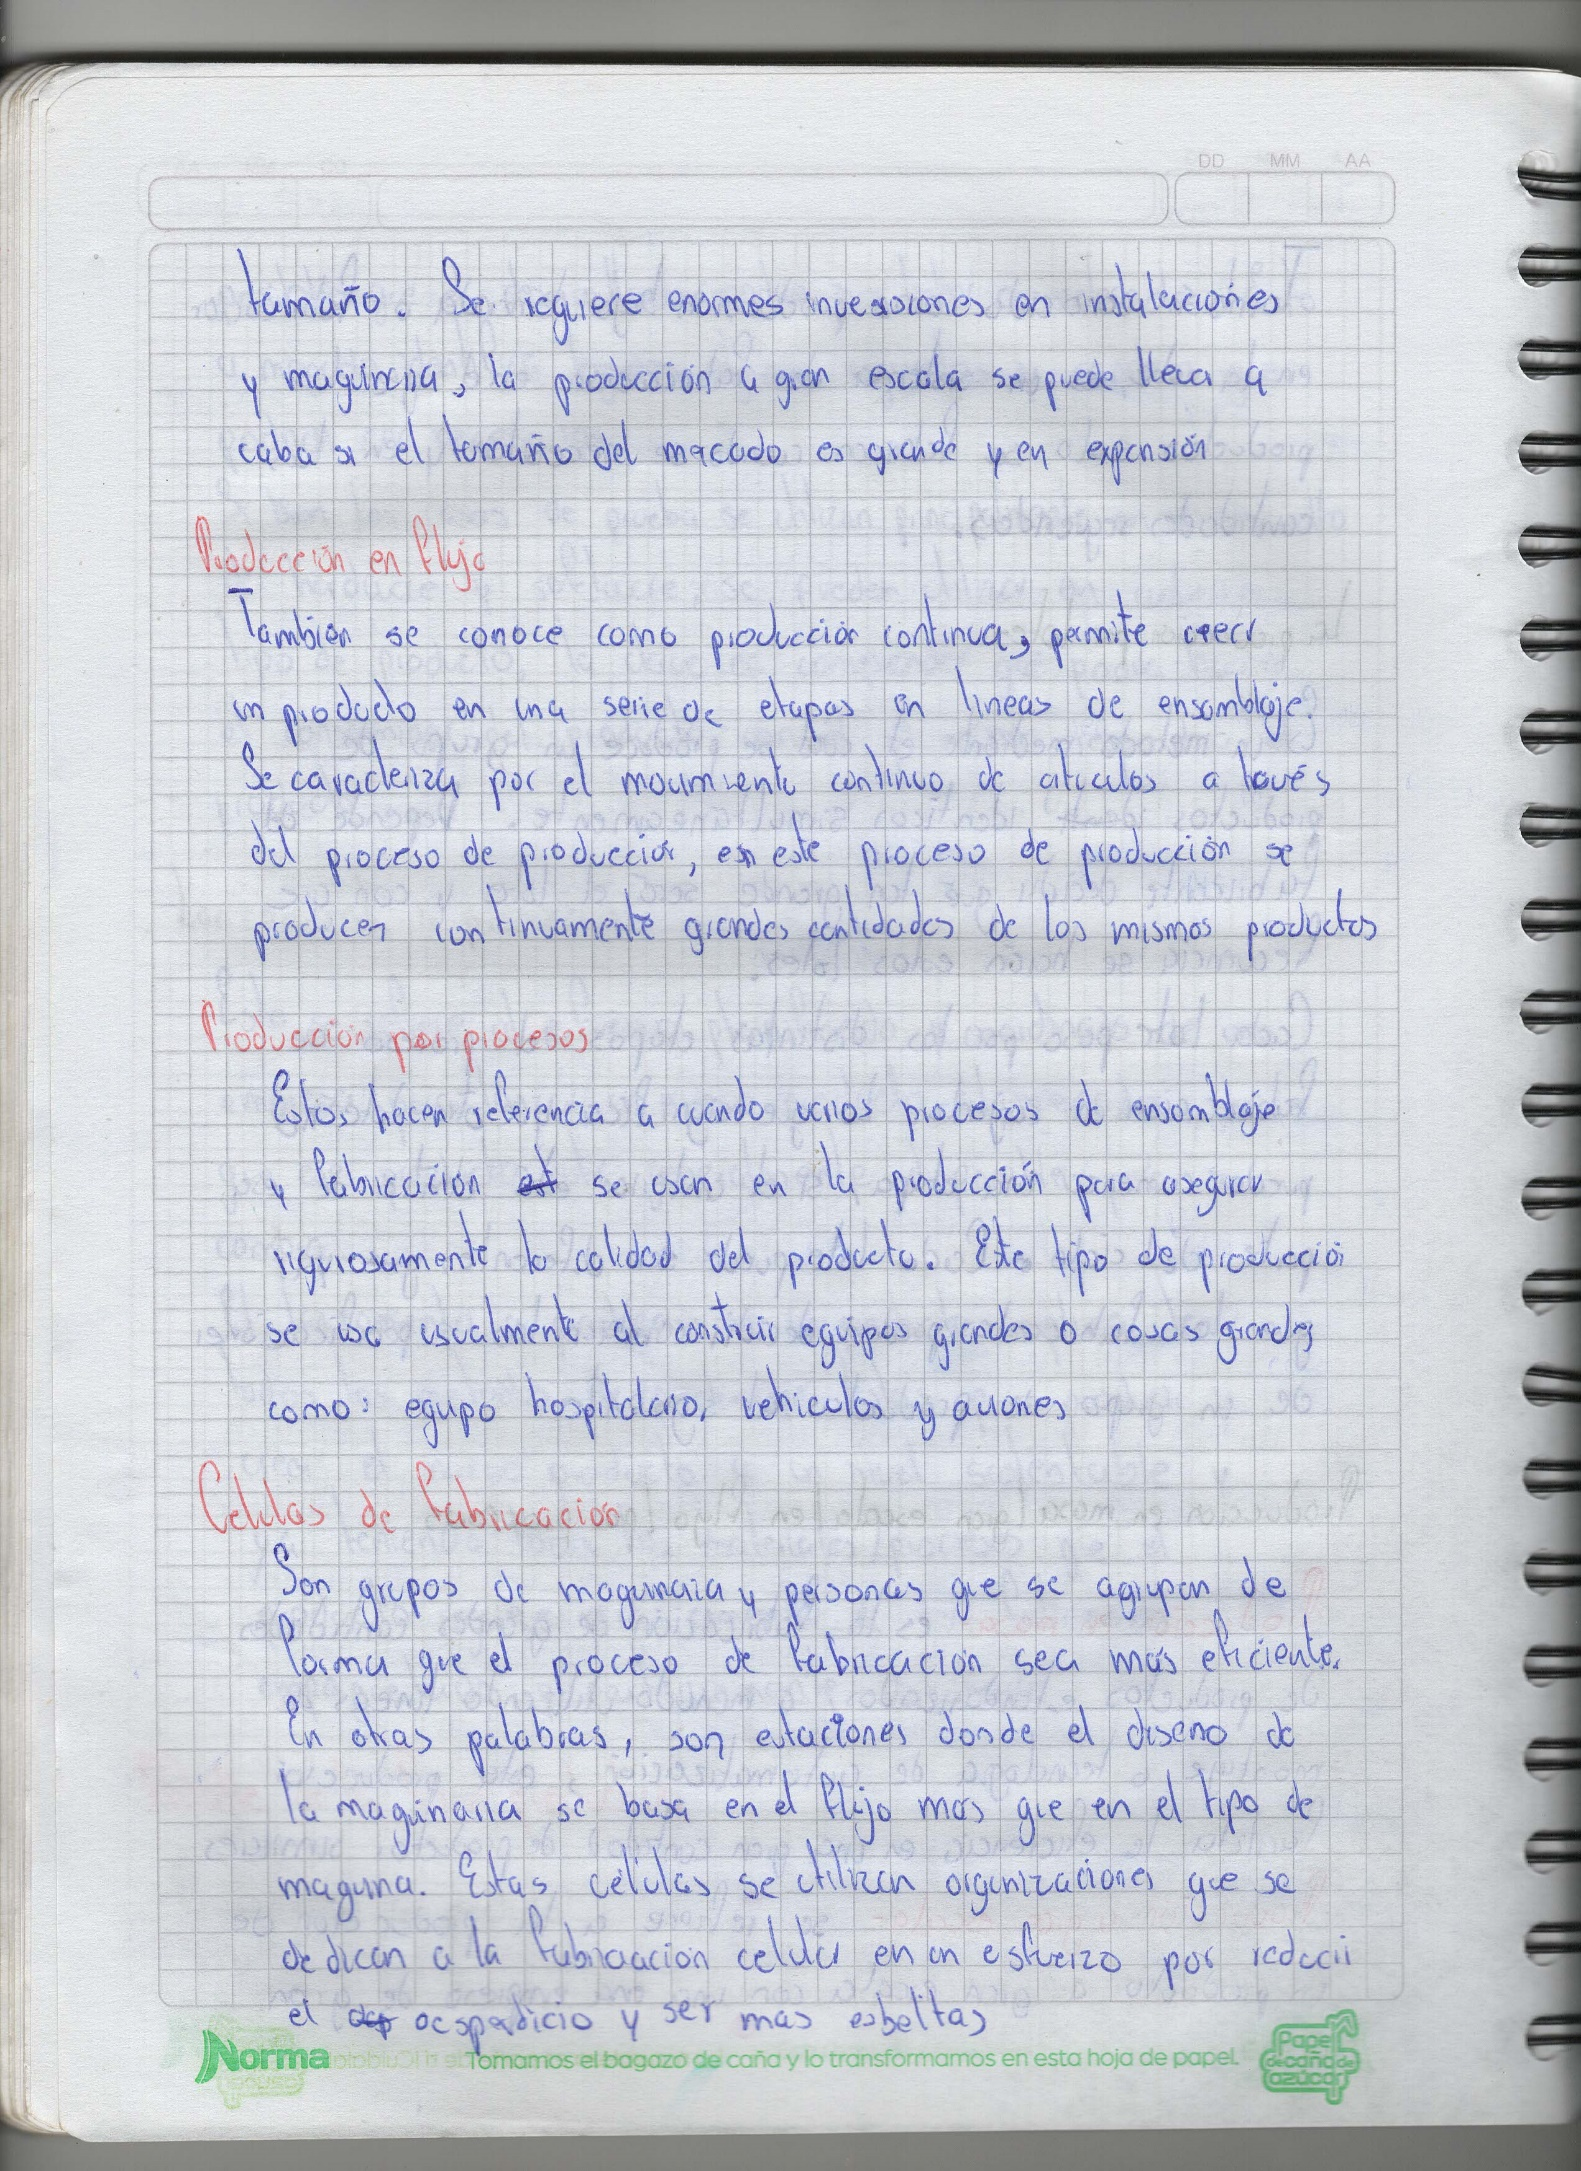 DD MM AA
tamaño. Se requiere enormes inversiones en instalaciones
y maquinaria, la producción a gran escala se puede llevar a
caba si el tamaño del mercado es grande y en expansión
Producción en flujo
También se conoce como producción continua, permite creer
un producto en una serie de etapas en lineas de ensamblaje.
Se caracteriza por el movimiento continuo de articulos a través
del proceso de producción, en este proceso de producción se
producen continuamente grandes cantidades de los mismos productos
Producción por procesos
Estos hacen referencia a cuando varios procesos de ensamblaje
y fabricación est se usan en la producción para asegurar
rigurosamente la calidad del producto. Este tipo de producción
se usa usualmente al construir equipos grandes o cosas grandes
como: equipo hospitalario, vehiculos y aviones
Celulas de fabricación
Son grupos de maquinaria y personas que se agrupan de
forma que el proceso de fabricación sea más eficiente.
En otras palabras, son estaciones donde el diseno de
la maquinaria se basa en el flujo mas que en el tipo de
maquina. Estas células se utilizan organizaciones que se
dedican a la fabricación celular en un esfuerzo por reducir
el y ser mas esbeltas
Norma Tomamos el bagazo de caña y lo transformamos en esta hoja de papel.
Papel
de caña de
azúcar